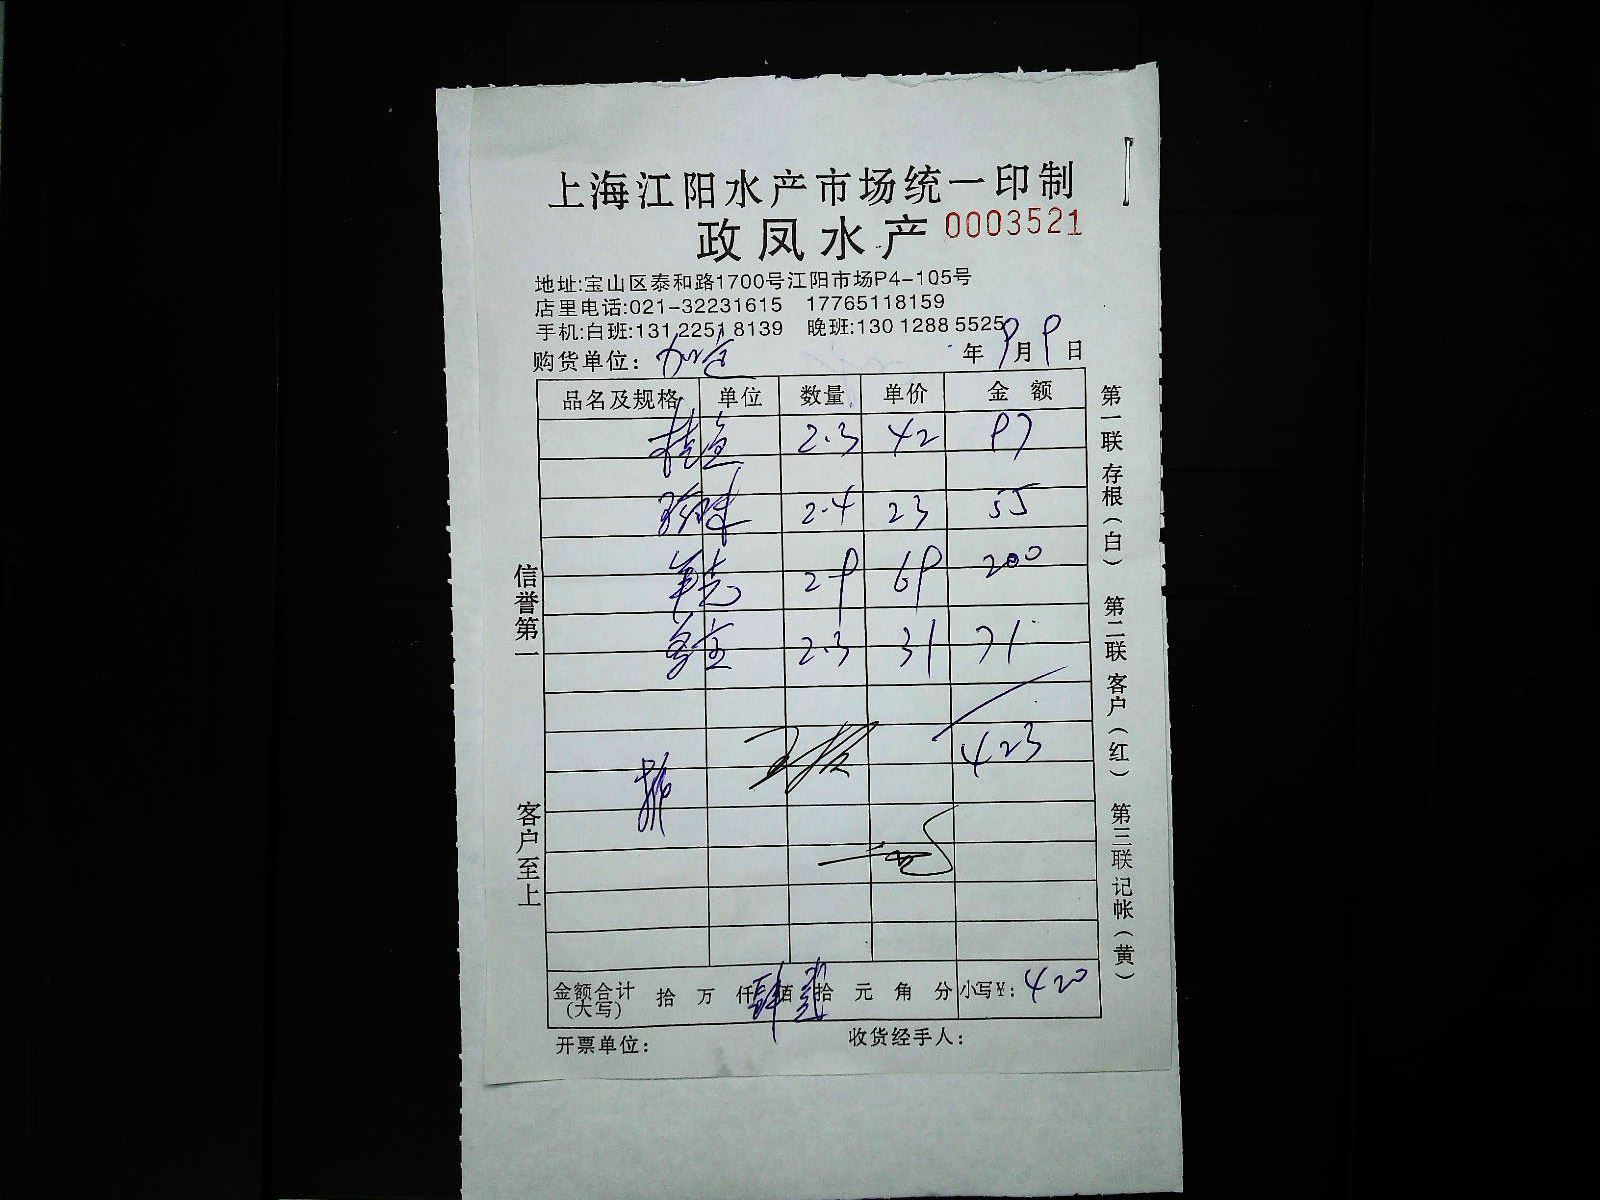 上海江阳水产市场统一印制
政凤水产 0003521
地址:宝山区泰和路1700号江阳市场P4-105号
店里电话:021-32231615 17765118159
手机:白班:131 2251 8139 晚班:130 1288 5525
购货单位: 年 9月 9日
品名及规格 单位 数量 单价 金额
桂鱼 2.3 42 97
2.4 23 55
2.9 69 200
2.3 31 71
423
金额合计(大写) 拾 万 仟 肆 佰 贰 拾 元 角 分 小写¥: 420
开票单位: 收货经手人:
信誉第一
客户至上
第一联存根(白) 第二联客户(红) 第三联记帐(黄)